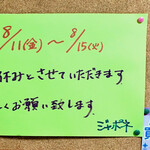 8/11(金)～8/15(火)
休みとさせていただきます
くお願い致します。
ジャポネ